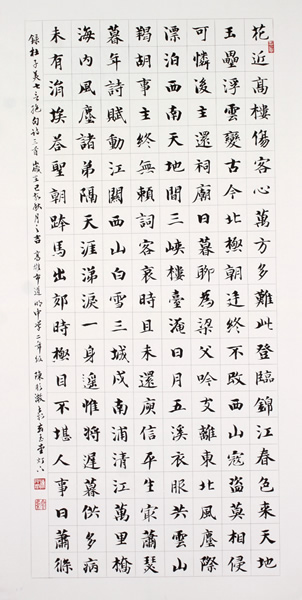 花近高樓傷客心萬方多難此登臨錦江春色來天地
玉壘浮雲變古今北極朝廷終不改西山寇盜莫相侵
可憐後主還祠廟日暮聊為梁父吟支離東北風塵際
漂泊西南天地間三峽樓臺淹日月五溪衣服共雲山
羯胡事主終無賴詞客哀時且未還庾信平生最蕭瑟
暮年詩賦動江關西山白雪三城戍南浦清江萬里橋
海內風塵諸弟隔天涯涕淚一身遙惟將遲暮供多病
未有涓埃答聖朝跨馬出郊時極目不堪人事日蕭條
錄杜子美七言絕句詩三首歲辛巳秋月之吉 高雄市道明中學二年級